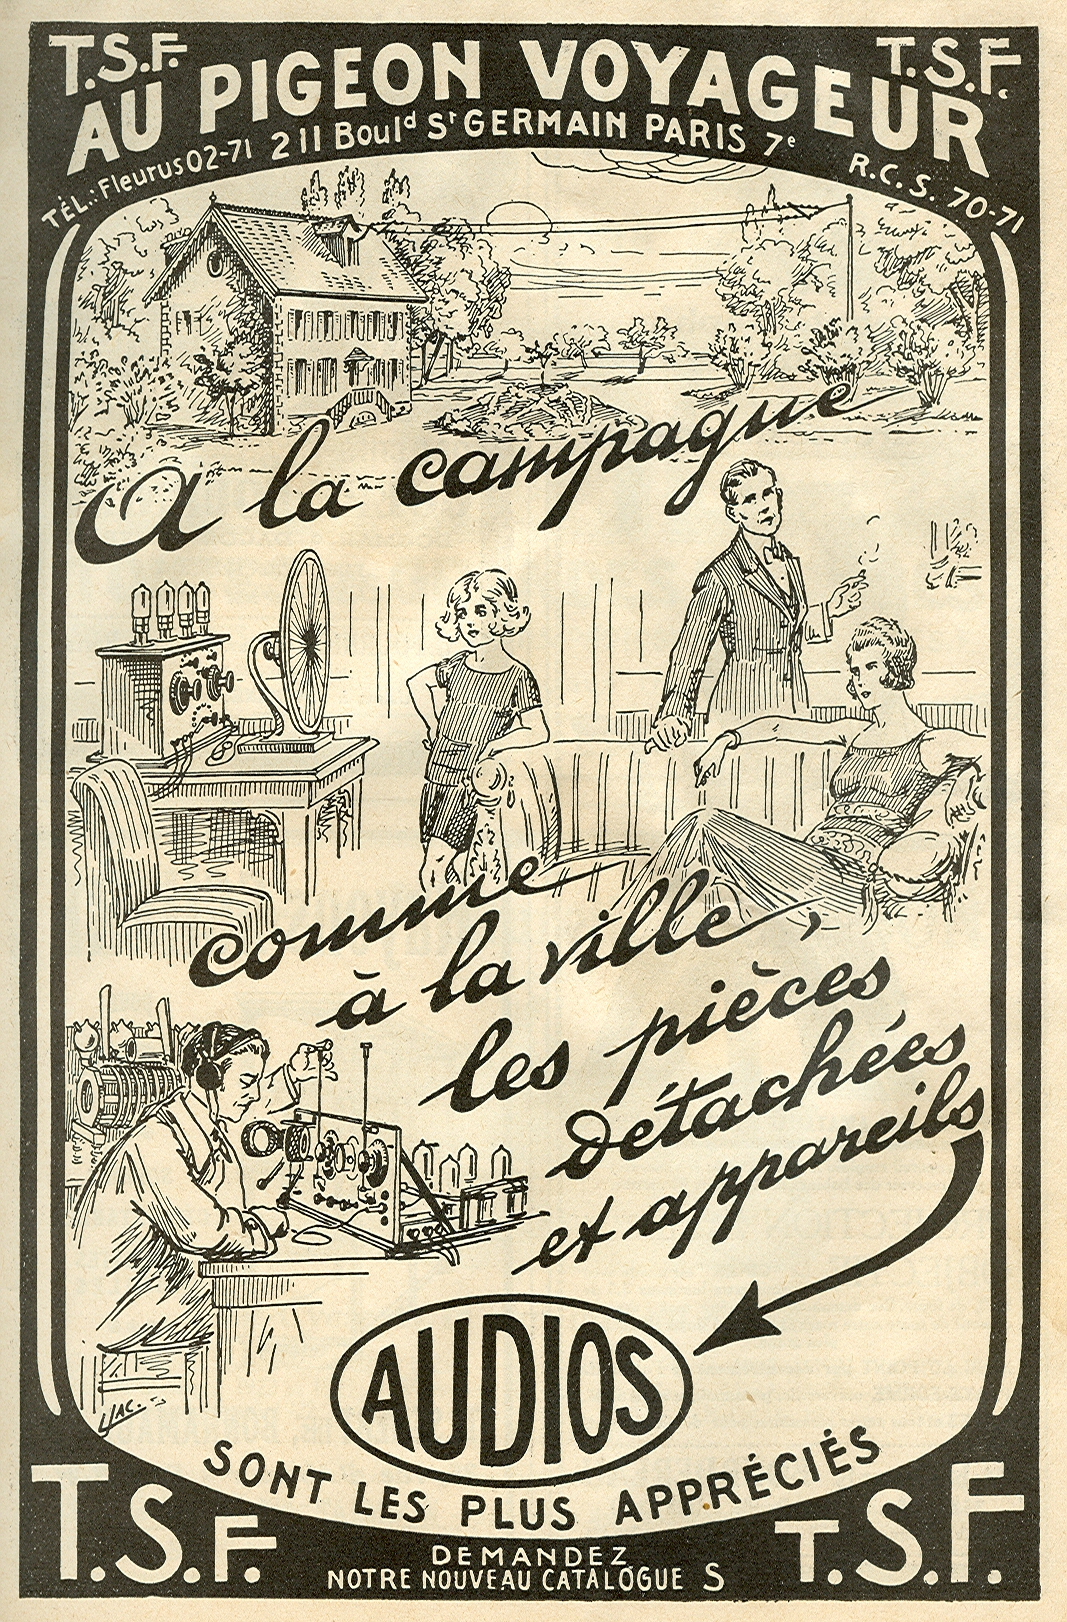 T.S.F. T.S.F.
AU PIGEON VOYAGEUR
TÉL.: Fleurus 02-71 211 Bould St GERMAIN PARIS 7e R.C.S. 70-71
A la campagne
comme
à la ville,
les pièces
détachées
et appareils
AUDIOS
SONT LES PLUS APPRÉCIÉS
T.S.F. T.S.F.
DEMANDEZ
NOTRE NOUVEAU CATALOGUE S